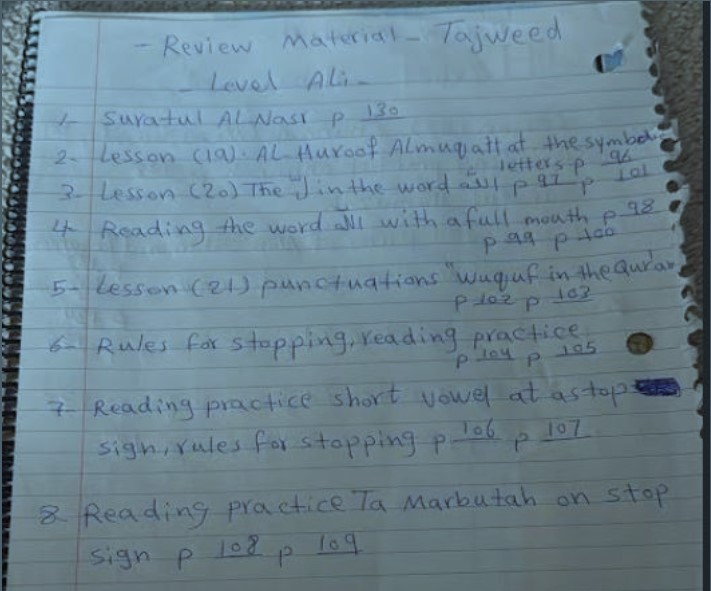 - Review Material - Tajweed
- Level Ali -
1- Suratul AL Nasr p 130
2- Lesson (19). AL Huroof Almuqattat the symbol
letters p 96
3- Lesson (20) The "ل" in the word الله p 97 p 101
4- Reading the word الله with a full mouth p 98
p 99 p 100
5- Lesson (21) punctuations "wuquf in the Qur'an
p 102 p 103
6- Rules for stopping, reading practice
p 104 p 105
7- Reading practice short vowel at a stop
sign, rules for stopping p 106 p 107
8- Reading practice Ta Marbutah on stop
sign p 108 p 109